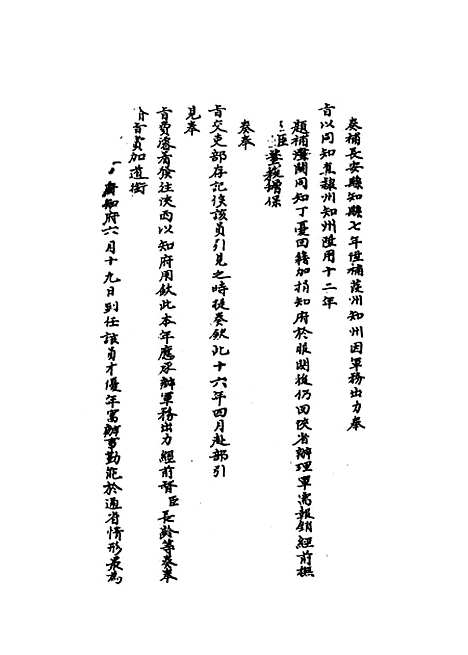 奏補長安縣知縣七年陞補葭州知州因軍務出力奉
旨以同知直隸州知州陞用十二年
題補潼關同知丁憂回籍加捐知府於服闋後仍回陝省辦理軍需報銷經前撫
臣董教增保
奏奉
旨交吏部存記俟該員引見之時提奏欽此十六年四月赴部引
見奉
旨費濬著發往陝西以知府用欽此本年應承辦軍務出力經前督臣長齡等奏奉
旨賞加道銜
知府六月十九日到任該員才優年富辦事勤能於通省情形最為